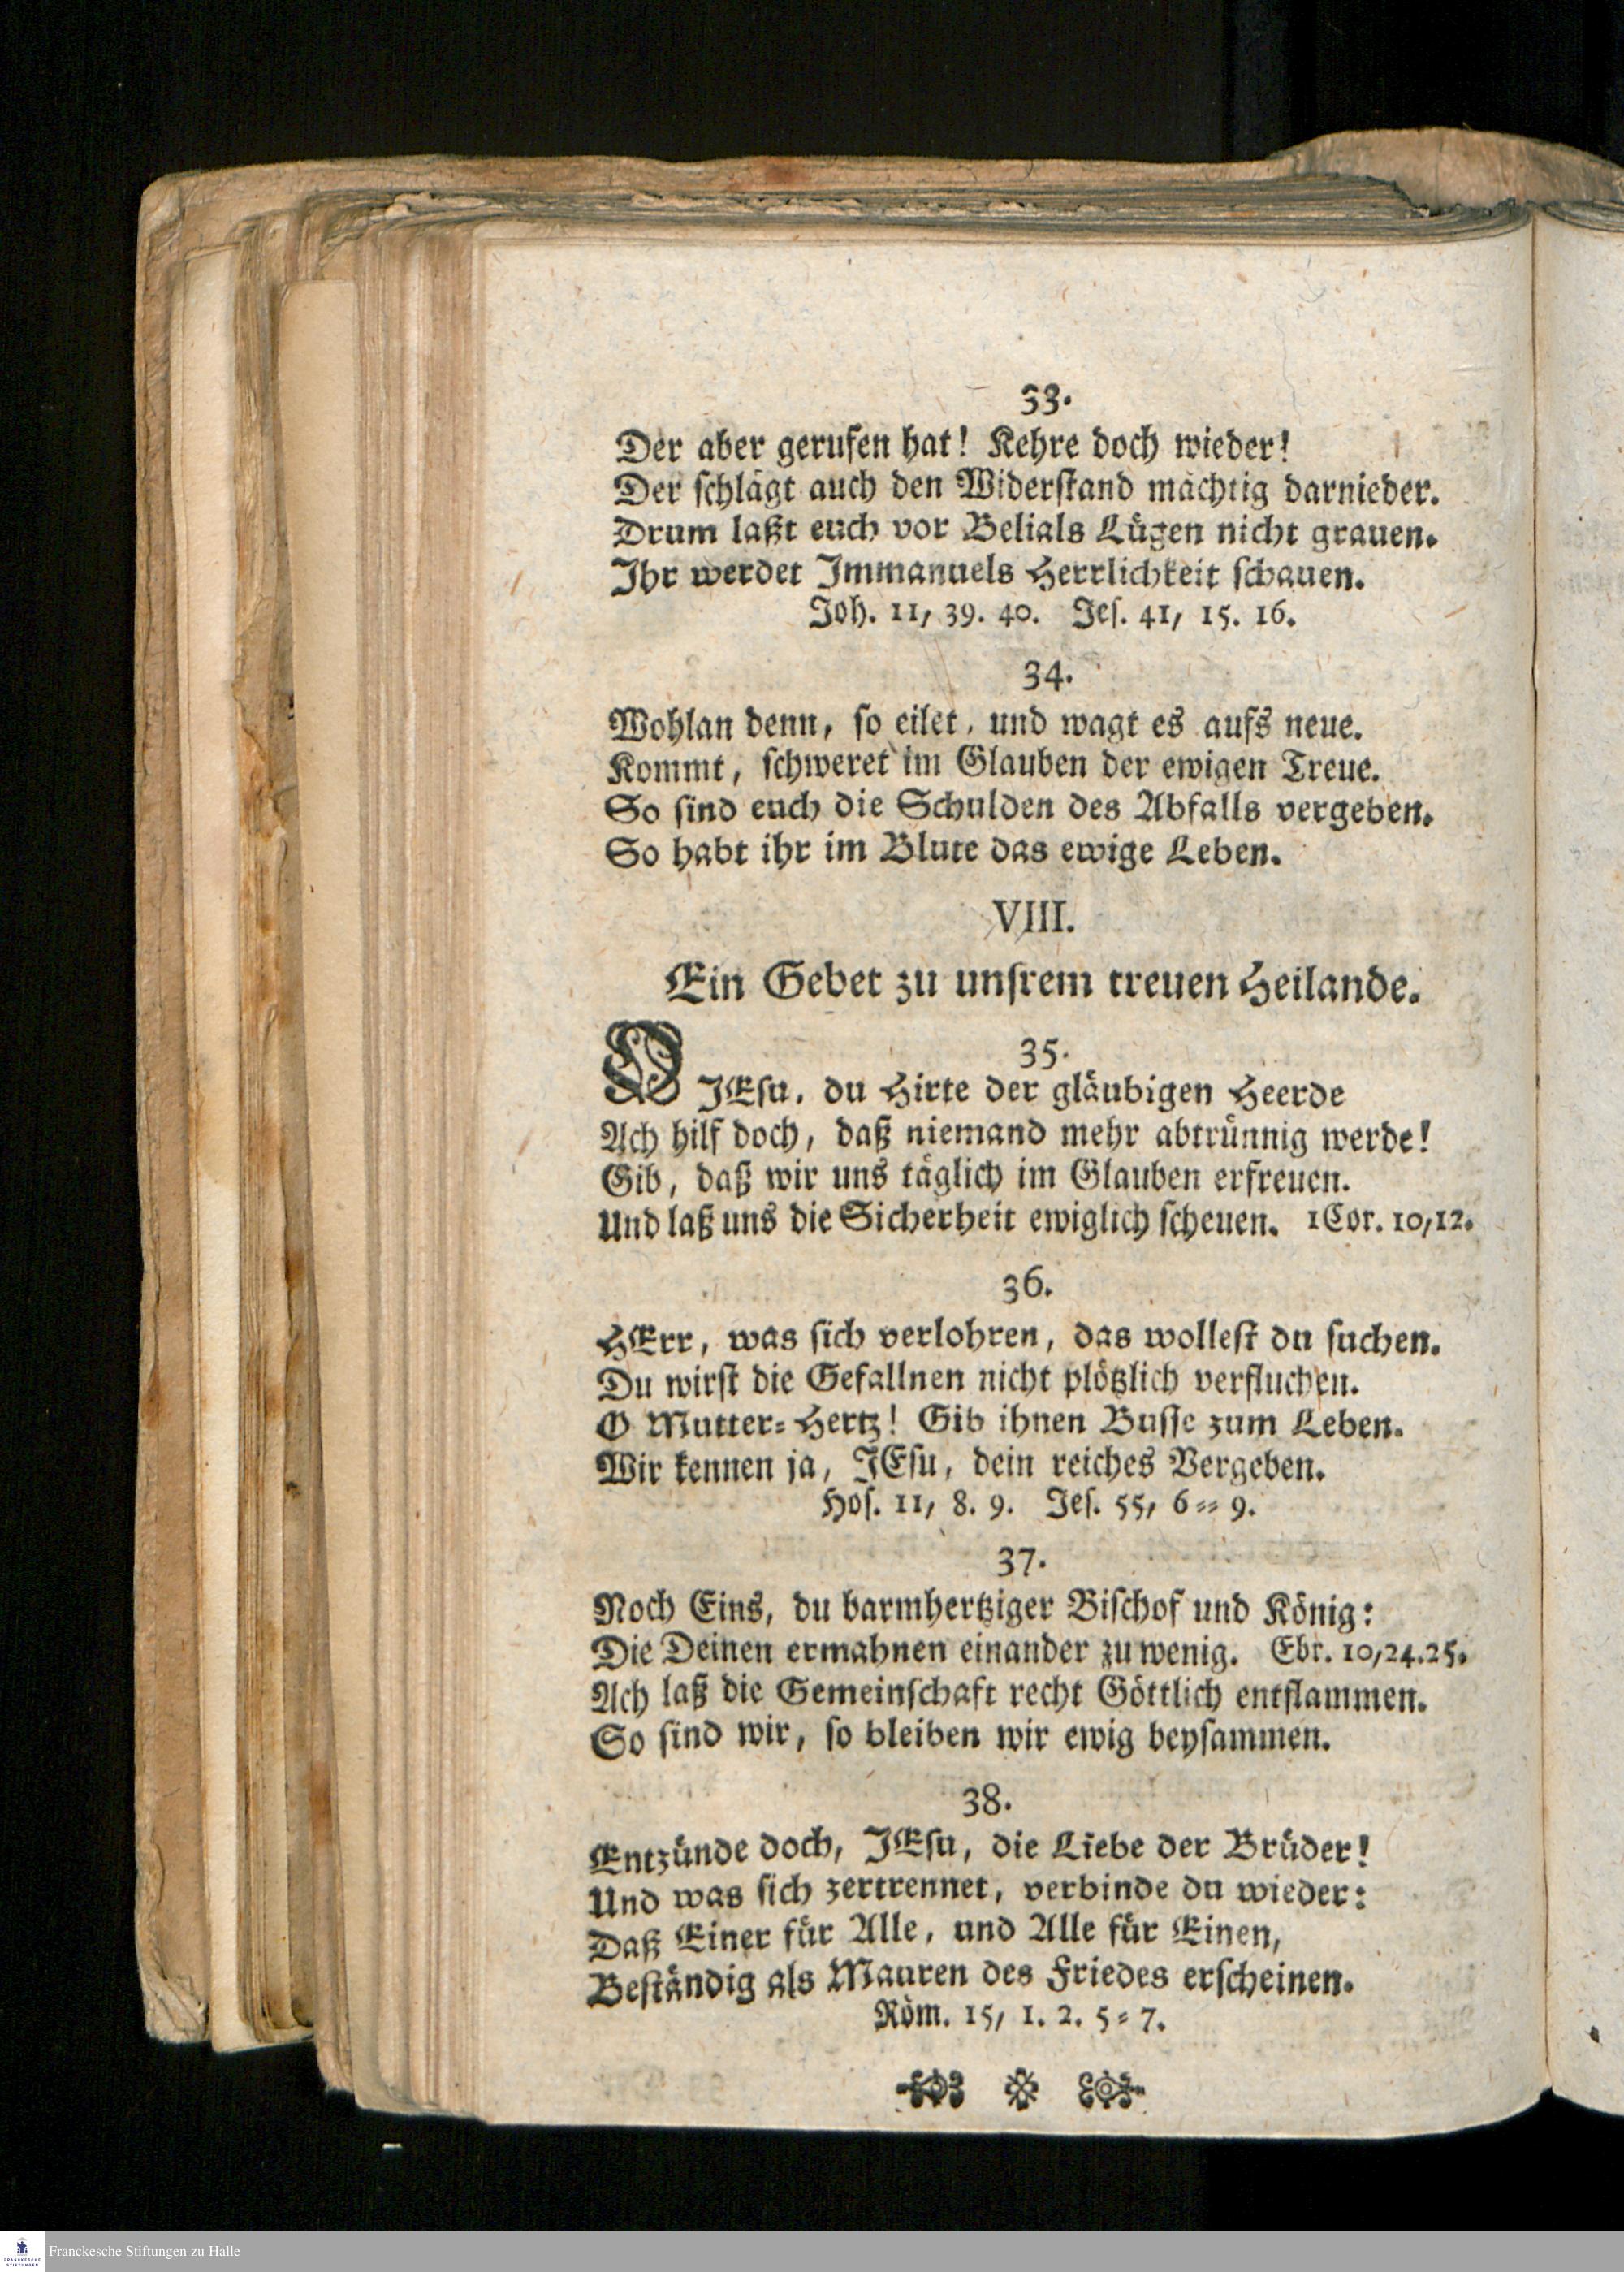 33.
Der aber gerufen hat! Kehre doch wieder!
Der schlägt auch den Widerstand mächtig darnieder.
Drum laßt euch vor Belials Lügen nicht grauen.
Ihr werdet Immanuels Herrlichkeit schauen.
Joh. 11, 39. 40. Jes. 41, 15. 16.
34.
Wohlan denn, so eilet, und wagt es aufs neue.
Kommt, schweret im Glauben der ewigen Treue.
So sind euch die Schulden des Abfalls vergeben.
So habt ihr im Blute das ewige Leben.
VIII.
Ein Gebet zu unsrem treuen Heilande.
35.
O JEsu, du Hirte der gläubigen Heerde
Ach hilf doch, daß niemand mehr abtrünnig werde!
Gib, daß wir uns täglich im Glauben erfreuen.
Und laß uns die Sicherheit ewiglich scheuen. 1 Cor. 10, 12.
36.
HErr, was sich verlohren, das wollest du suchen.
Du wirst die Gefallnen nicht plötzlich verfluchen.
O Mutter-Hertz! Gib ihnen Busse zum Leben.
Wir kennen ja, JEsu, dein reiches Vergeben.
Hos. 11, 8. 9. Jes. 55, 6-- 9.
37.
Noch Eins, du barmhertziger Bischof und König:
Die Deinen ermahnen einander zu wenig. Ebr. 10, 24. 25.
Ach laß die Gemeinschaft recht Göttlich entflammen.
So sind wir, so bleiben wir ewig beysammen.
38.
Entzünde doch, JEsu, die Liebe der Brüder!
Und was sich zertrennet, verbinde du wieder:
Daß Einer für Alle, und Alle für Einen,
Beständig als Mauren des Friedes erscheinen.
Röm. 15, 1. 2. 5-7.
FRANCKESCHE STIFTUNGEN
Franckesche Stiftungen zu Halle